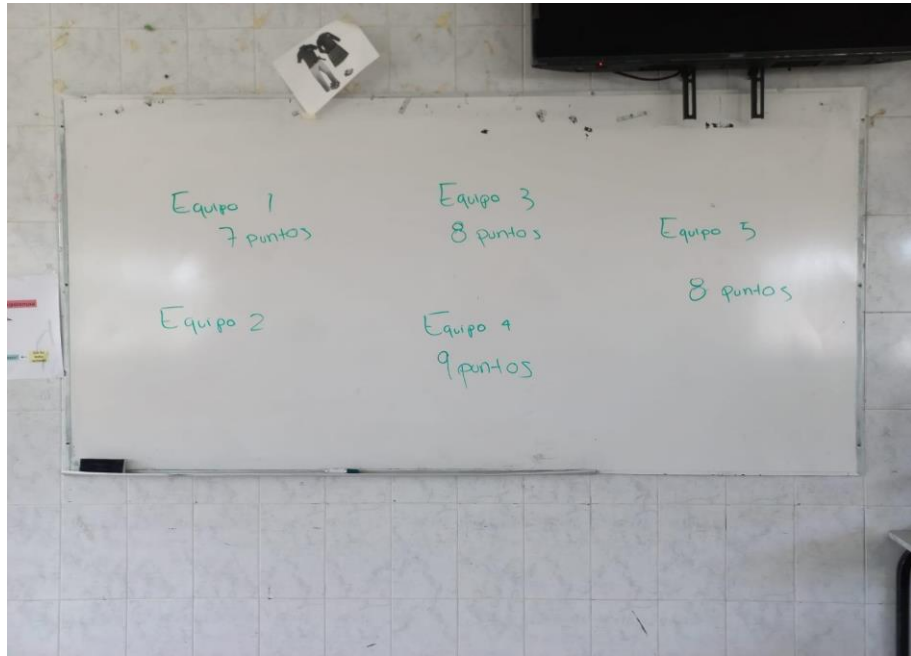 Equipo 1
7 puntos
Equipo 2
Equipo 3
8 puntos
Equipo 4
9 puntos
Equipo 5
8 puntos